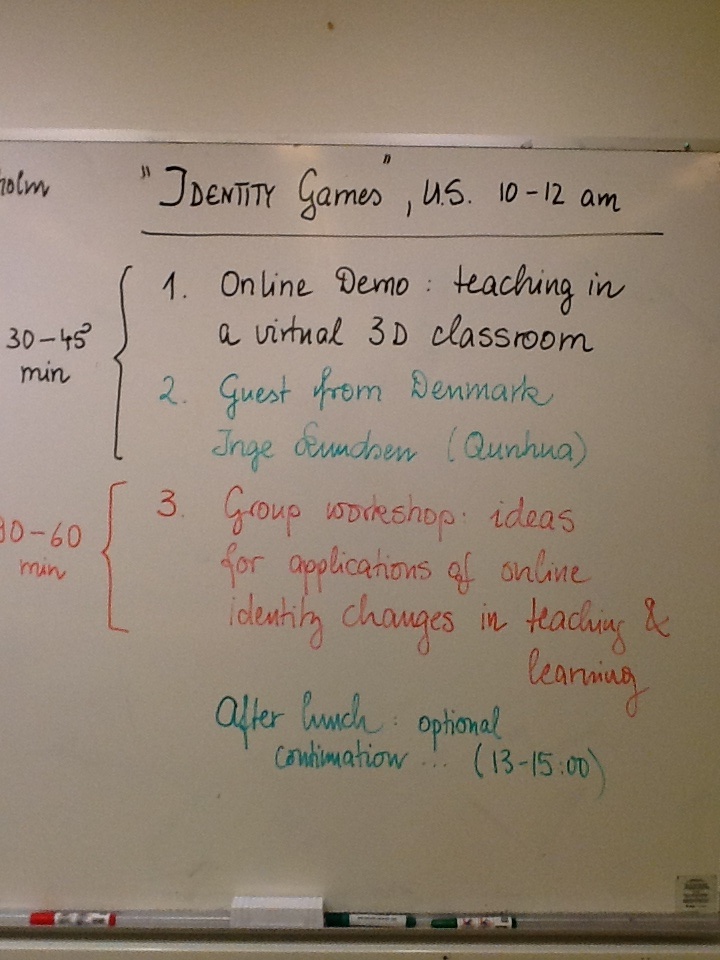 holm
"IDENTITY Games", U.S. 10-12 am
30-45
min
1. Online Demo: teaching in
a virtual 3D classroom
2. Guest from Denmark
Inge (Qunhua)
0-60
min
3. Group workshop: ideas
for applications of online
identity changes in teaching &
learning
After lunch: optional
continuation ... (13-15:00)